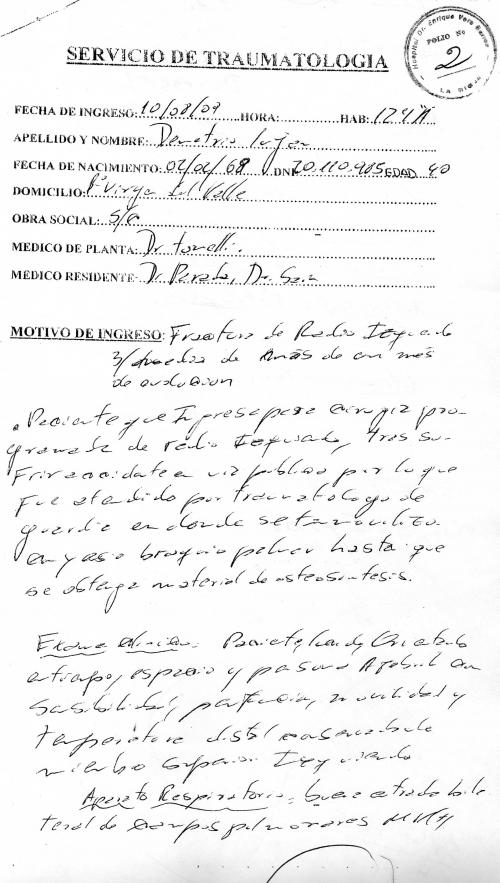 Hospital Dr. Enrique Vera Barros
FOLIO Nº
2
LA RIOJA
SERVICIO DE TRAUMATOLOGIA
FECHA DE INGRESO: 10/08/09 HORA: HAB: 124
APELLIDO Y NOMBRE: Demetrio Lujan
FECHA DE NACIMIENTO: 02/02/68 DNI 20.110.985 EDAD 40
DOMICILIO: Bº Virgen del Valle
OBRA SOCIAL: S/O
MEDICO DE PLANTA: Dr
MEDICO RESIDENTE: Dr Peralta, Dr
MOTIVO DE INGRESO: Fractura de Radio Izquierdo
de más de un mes
de evolucion
Paciente que Ingresa para cirugia pro-
gramada de radio Izquierdo, tras su-
Frir accidente en via publica por lo que
Fue atendido por traumatologo de
guardia en donde se Inmoviliza
en yeso braquio palmar hasta que
se obtenga material de osteosintesis.
Examen clinico: Paciente lucido, Orientado
en tiempo, espacio y persona Afebril con
sensibilidad, perfusion, movilidad y
temperatura distal conservada de
miembro superior Izquierdo
Aparato Respiratorio: buena entrada bila
teral de campos pulmonares